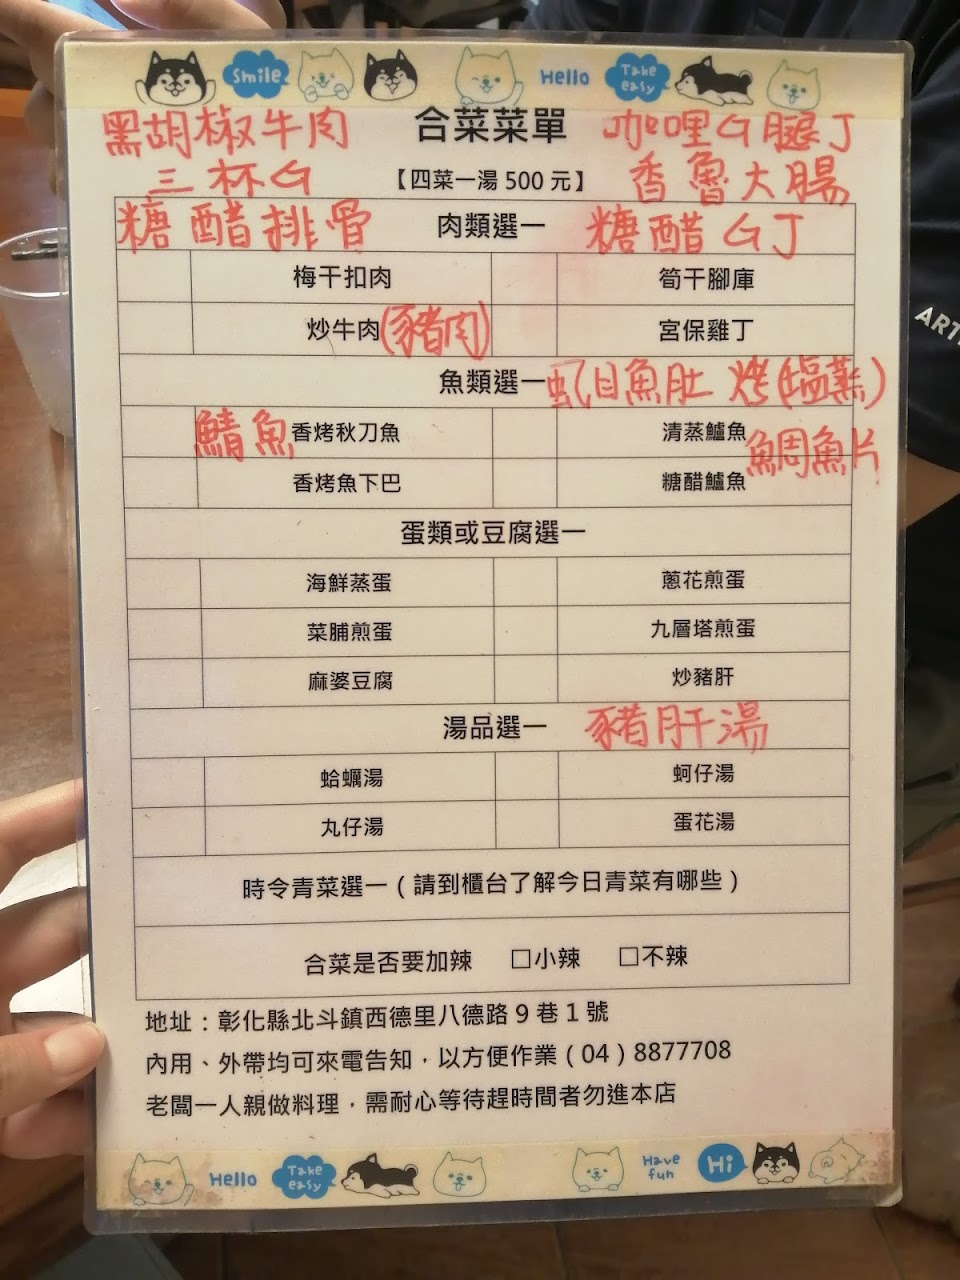 Smile Hello Take easy
黑胡椒牛肉 合菜菜單 咖哩G腿丁
三杯G 【四菜一湯 500 元】 香魯大腸
糖醋排骨 肉類選一 糖醋GJ
梅干扣肉 筍干腳庫
炒牛肉(豬肉) 宮保雞丁
魚類選一 虱目魚肚 烤(塩蒸)
鯖魚 香烤秋刀魚 清蒸鱸魚
鯛魚片
香烤魚下巴 糖醋鱸魚
蛋類或豆腐選一
海鮮蒸蛋 蔥花煎蛋
菜脯煎蛋 九層塔煎蛋
麻婆豆腐 炒豬肝
湯品選一 豬肝湯
蛤蠣湯 蚵仔湯
丸仔湯 蛋花湯
時令青菜選一（請到櫃台了解今日青菜有哪些）
合菜是否要加辣 □小辣 □不辣
地址：彰化縣北斗鎮西德里八德路 9 巷 1 號
內用、外帶均可來電告知，以方便作業（04）8877708
老闆一人親做料理，需耐心等待趕時間者勿進本店
Hello Take easy Have fun Hi
ART